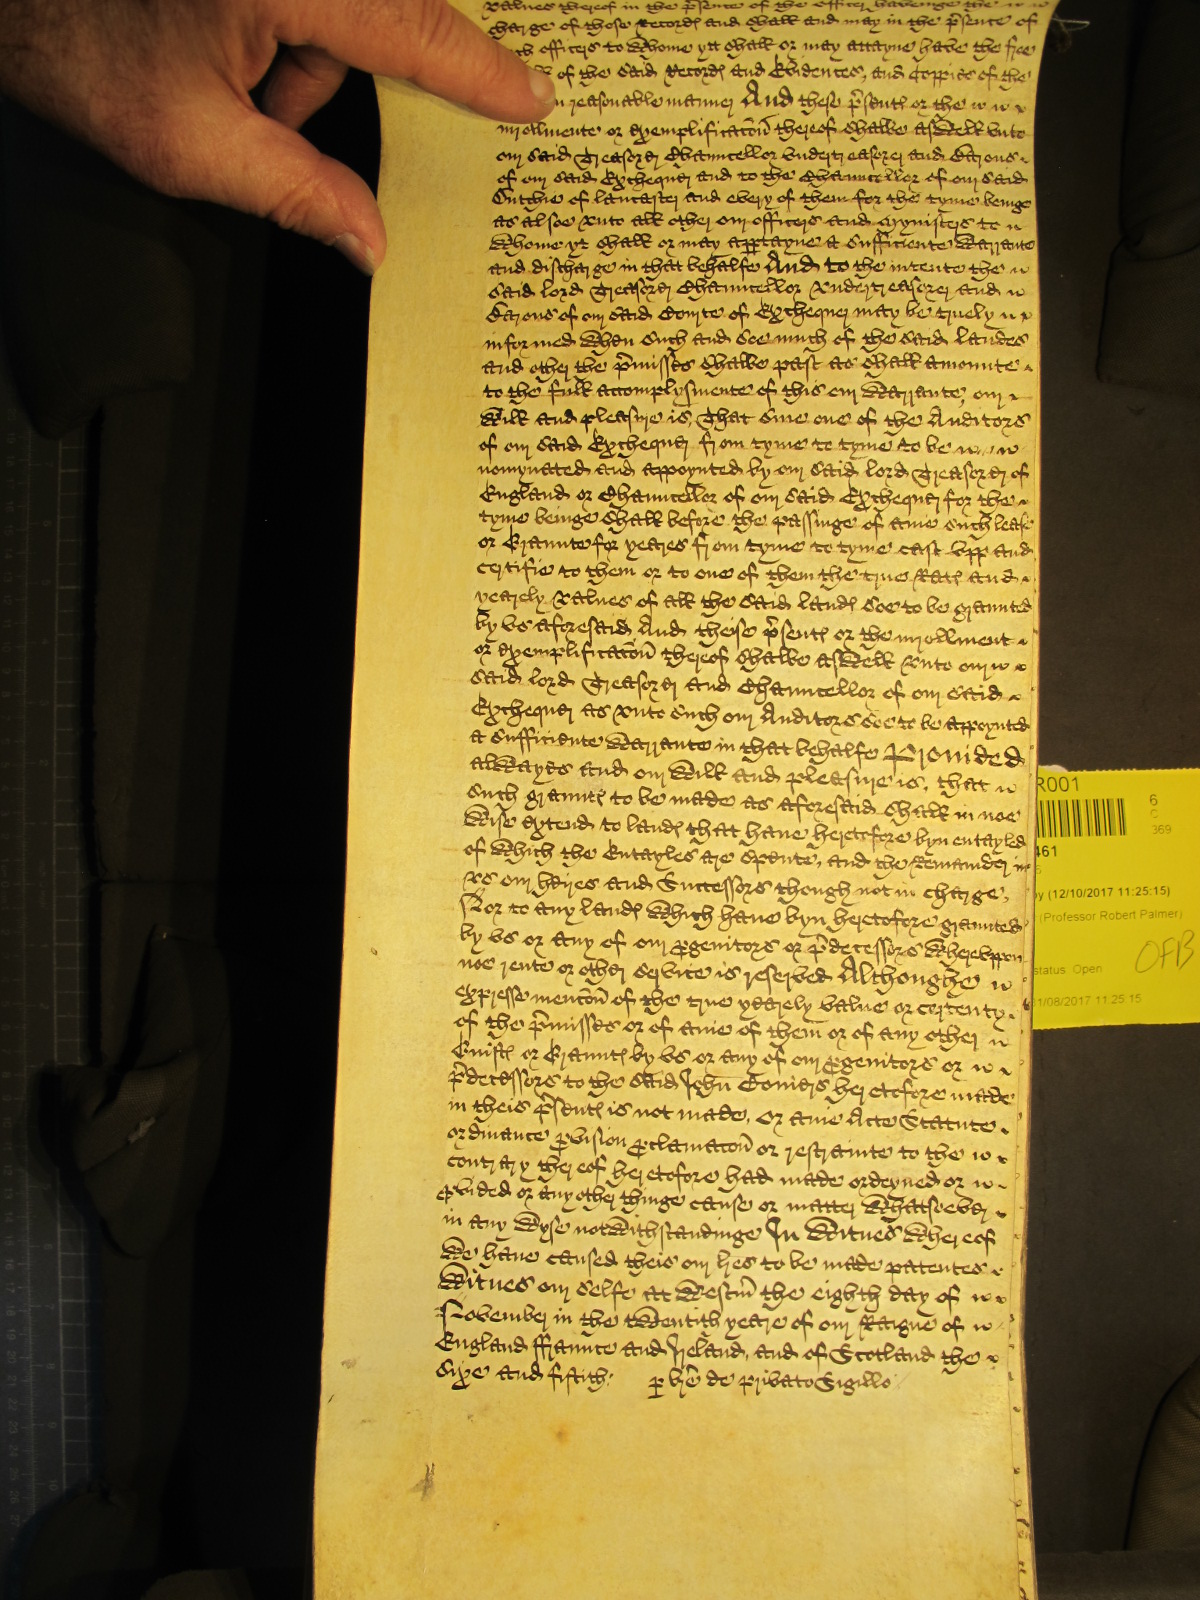 values thereof in the p̄sence of the officer havenge the
charge of those Record℮ and shall and may in the p̄sence of
such officers to whome yt shall or may attayne have the free
of the said Record℮ and Evidences, and Coppies of the
in reasonable manner And these p̄sent℮ or the
inrollmente or exemplificac̄on̄ thereof shalbe aswell vnto
our said Treasorer Chauncellor vndertreasorer and Barons
of our said Exchequer and to the Chauncellor of our said
Dutchie of lancaster and every of them for the tyme beinge
as alsoe vnto all other our officers and mynisters to
whome yt shall or may apptayne a sufficiente warrante
and discharge in that behalfe And to the intente the
said lord Treasorer Chauncellor vndertreasorer and
Barons of our said Courte of Exchequer may be truely
informed when such and soe much of the said landes
and other the p̄misses shalbe past as shall amounte
to the full accomplyshmente of this our warrante, our
will and pleasure is, That some one of the Auditors
of our said Exchequer from tyme to tyme to be
nomynated and appoynted by our said lord Treasorer of
England or Chauncellor of our said Exchequer for the
tyme beinge shall before the passinge of anie such lease
or Graunte for yeares from tyme to tyme cast vpp and
certifie to them or to one of them the true Rat℮ and
yearely values of all the said land℮ soe to be graunted
by vs aforesaid And theise p̄sent℮ or the inrollment
or exemplificac̄on̄ thereof shalbe aswell vnto our
said lord Treasorer and Chauncellor of our said
Exchequer as vnto such our Auditors soe to be appoynted
a sufficiente warrante in that behalfe Provided
alwayes and our will and pleasure is, that
such graunt℮ to be made as aforesaid shall in noe
wise extend to land℮ that have heretofore byn entayled
of which the Entayles are spente, and the Remainder in
vs our heires and Successors though not in charge,
Nor to any land℮ which have byn heretofore graunted
by vs or any of our ꝓgenitors or p̄decessors wherevppon
noe rente or other service is reserved Althoughe
expresse menc̄on̄ of the true yearely value or certenty
of the p̄misses or of anie of them or of any other
Guift℮ or Graunt℮ by vs or any of our ꝓgenitors or
p̄decessors to the said John Coniers heretofore made
in theis p̄sent℮ is not made, Or anie Acte Statute
ordinance ꝓvision ꝓclamac̄on̄ or restrainte to the
contrary thereof heretofore had made ordeyned or
ꝓvided or any other thinge cause or matter whatsoever
in any wyse notwithstandinge In witnes whereof
we have caused theis our l̄res to be made patentes
witnes our selfe at westm̄ the eighth day of
November in the twentith yeare of our Raigne of
England ffraunce and Ireland, and of Scotland the
sixe and fiftith: ꝑ br̄e de privato Sigillo
R001
6
C
369
461
by (12/10/2017 11:25:15)
(Professor Robert Palmer)
OFB
status Open
1/08/2017 11:25:15